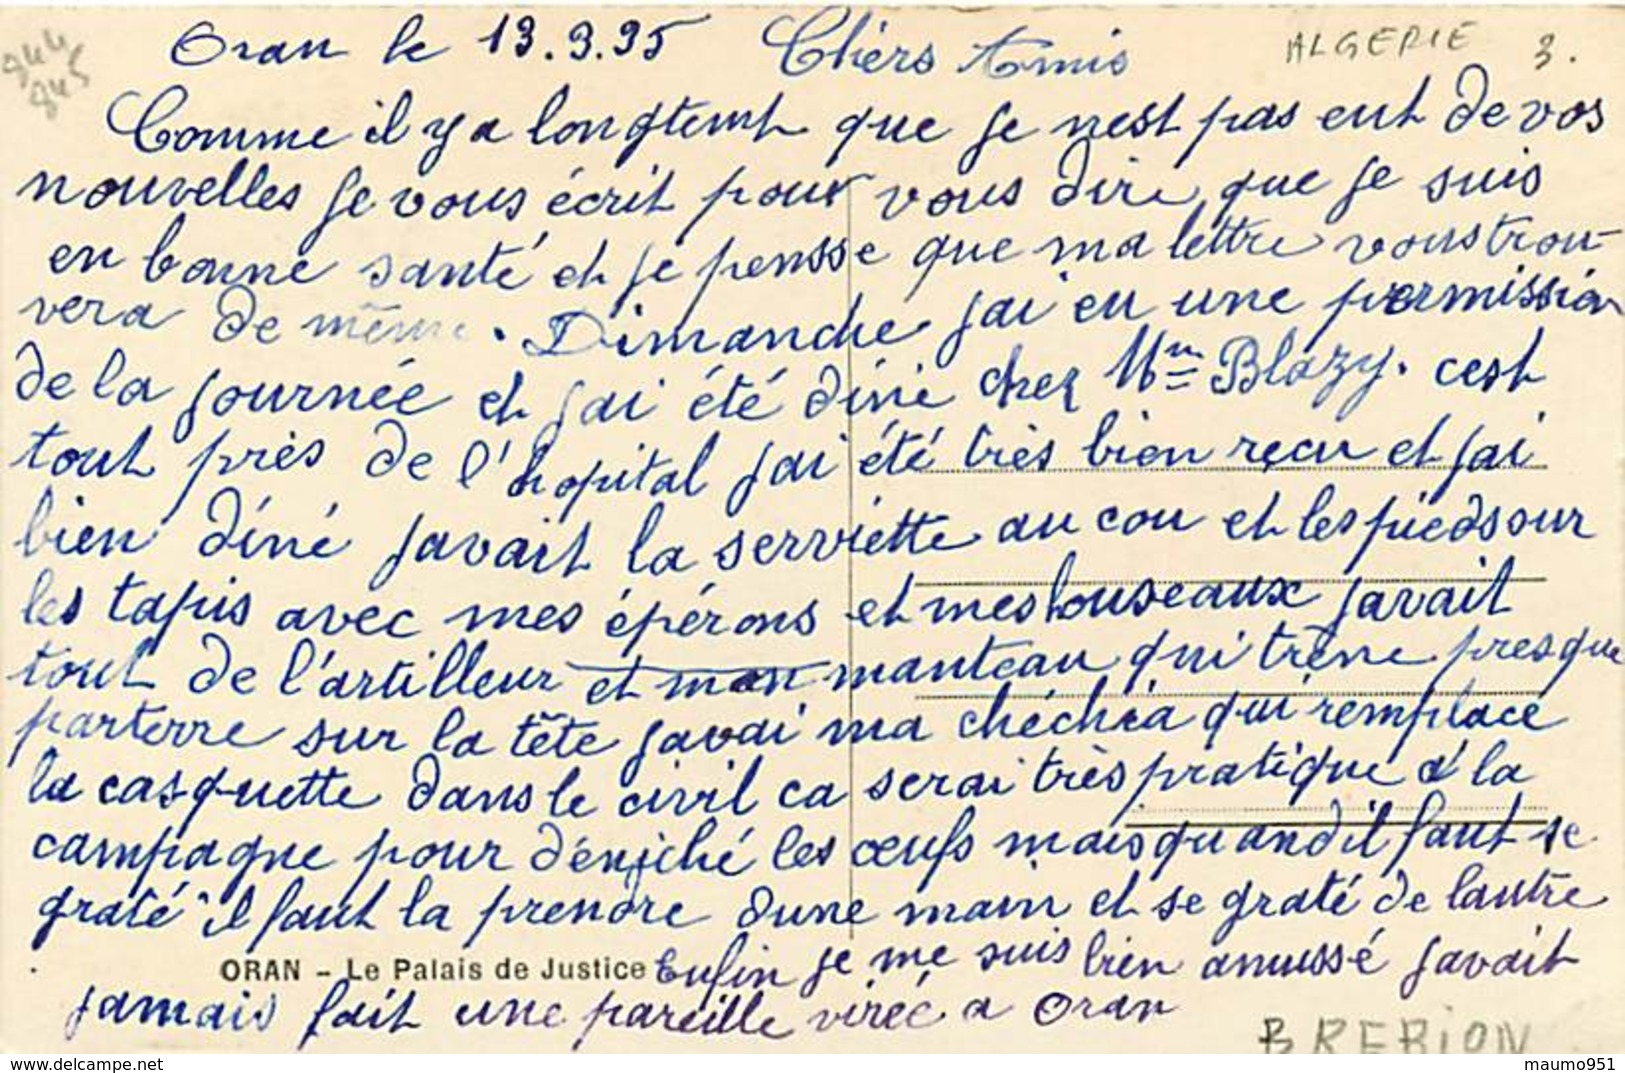 Oran le 13.3.35 Chèrs Amis
ALGERIE 3.
844
845
Comme il y a longtemt que je nest pas eut de vos
nouvelles je vous écrit pour vous dire que je suis
en bonne santé et je pensse que ma lettre vous trou-
vera de même. Dimanche jai eu une permission
de la journée et jai été diné chez Mme Blazy. cest
tout près de l'hopital jai été très bien recu et jai
bien diné javait la serviette au cou et les pieds sur
les tapis avec mes épérons et mes houseaux javait
tout de l'artilleur et mon manteau qui trène presque
parterre sur la tête javai ma chéchia qui remplace
la casquette dans le civil ca serai très pratique à la
campagne pour déniché les œufs mais quand il faut se
graté il faut la prendre dune main et se graté de lautre
ORAN - Le Palais de Justice Enfin je me suis bien amussé javait
jamais fait une pareille virée a Oran
BREBION
www.delcampe.net
maumo951